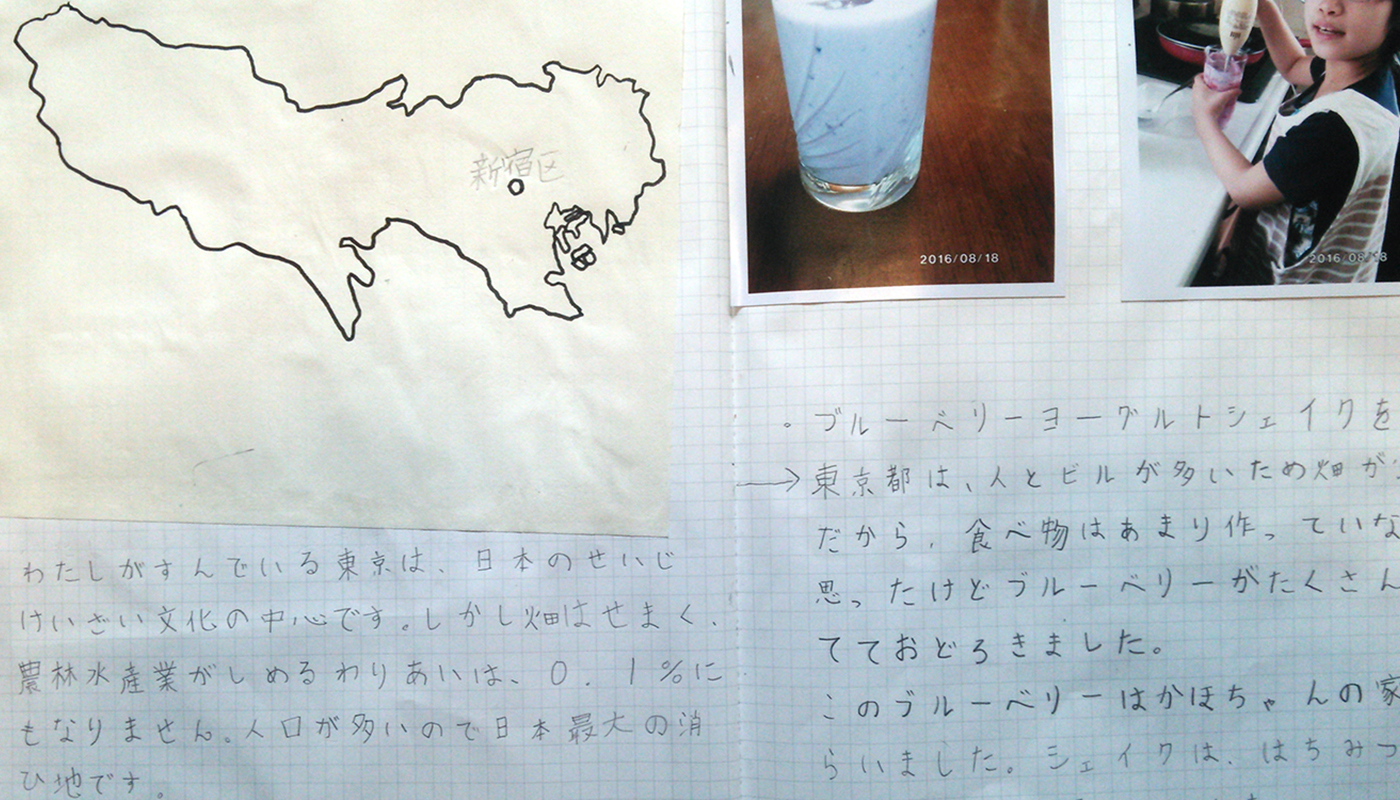 新宿区
わたしがすんでいる東京は、日本のせいじ
けいざい文化の中心です。しかし畑はせまく、
農林水産業がしめるわりあいは、0.1%に
もなりません。人口が多いので日本最大の消
ひ地です。
2016/08/18
2016/08/18
・ブルーベリーヨーグルトシェイクを
→東京都は、人とビルが多いため畑が
だから、食べ物はあまり作っていな
思ったけどブルーベリーがたくさん
てておどろきました。
このブルーベリーはかほちゃんの家
らいました。シェイクは、はちみつ